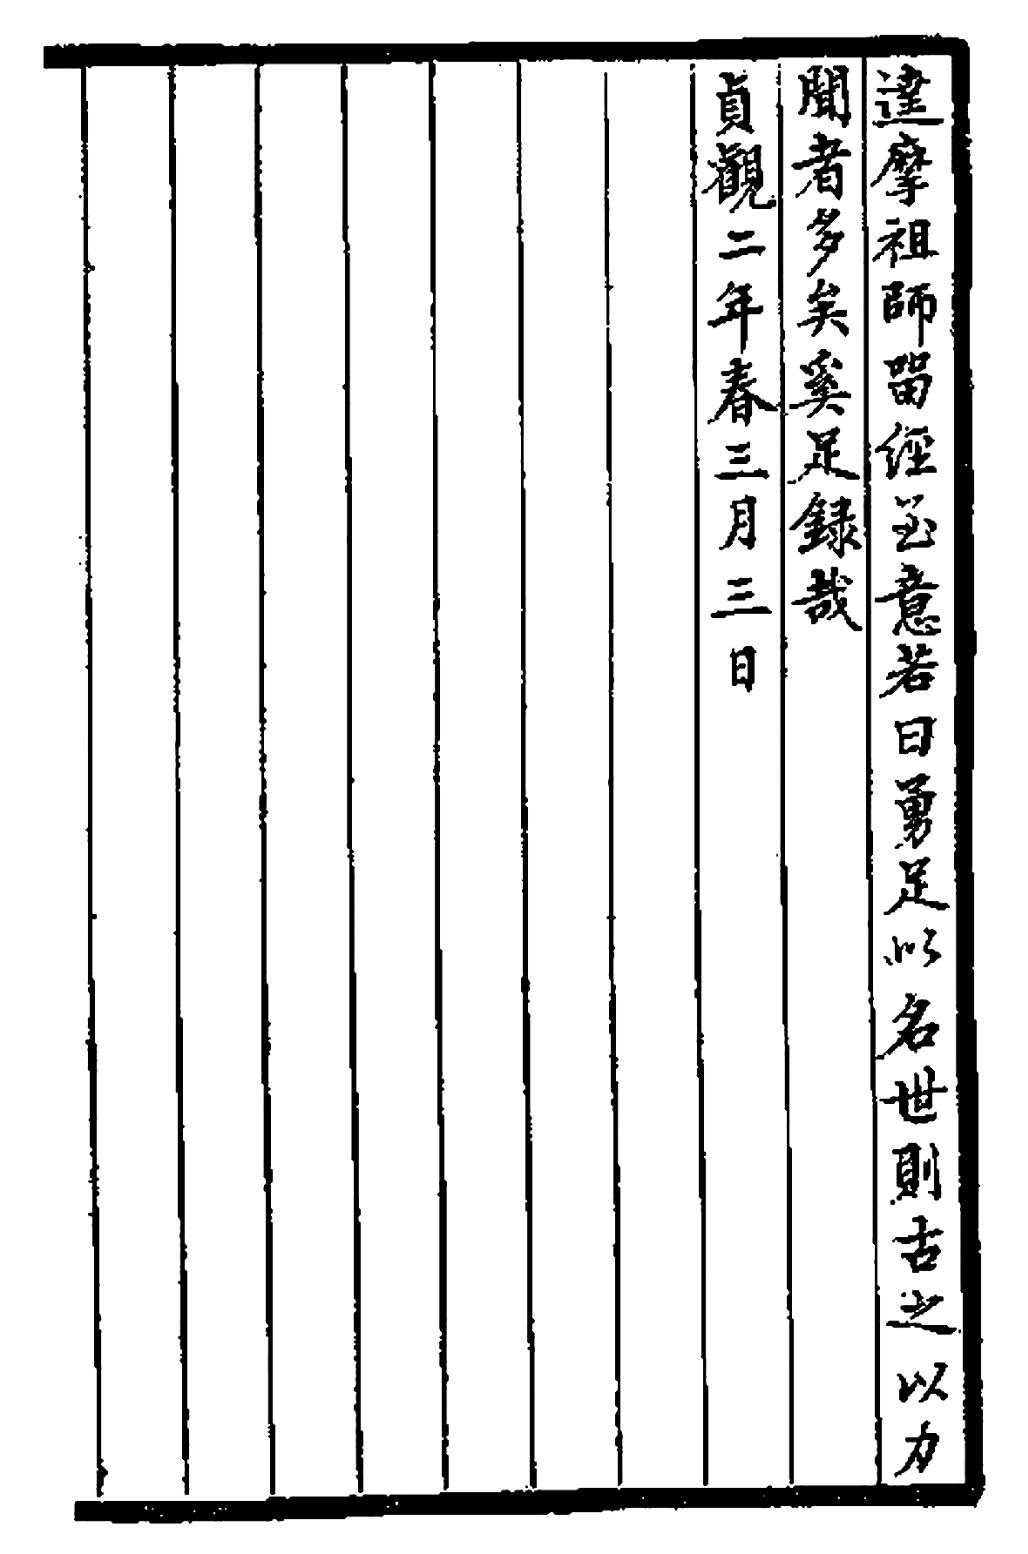 達摩祖師畱經至意若曰勇足以名世則古之以力
聞者多矣奚足録哉
貞觀二年春三月三日